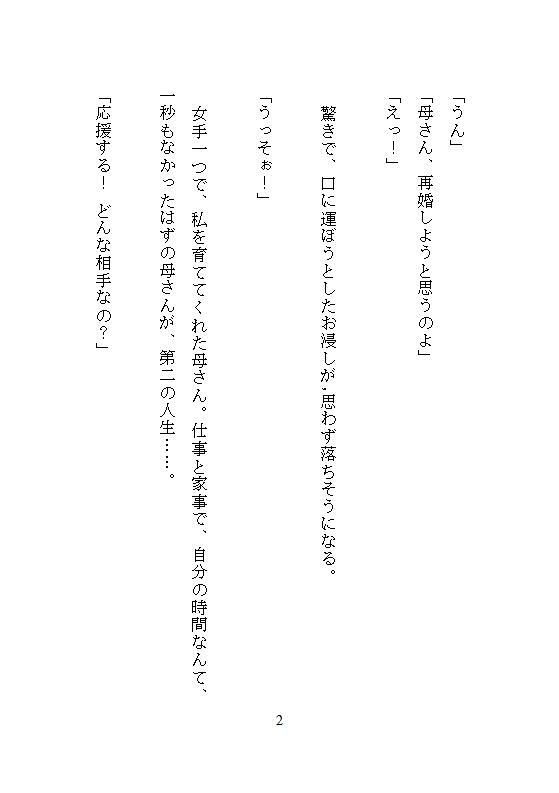 「うん」
「母さん、再婚しようと思うのよ」
「えっ！」
驚きで、口に運ぼうとしたお浸しが,思わず落ちそうになる。
「うっそぉ！」
女手一つで、私を育ててくれた母さん。仕事と家事で、自分の時間なんて、
一秒もなかったはずの母さんが、第二の人生……。
「応援する！どんな相手なの？」
2